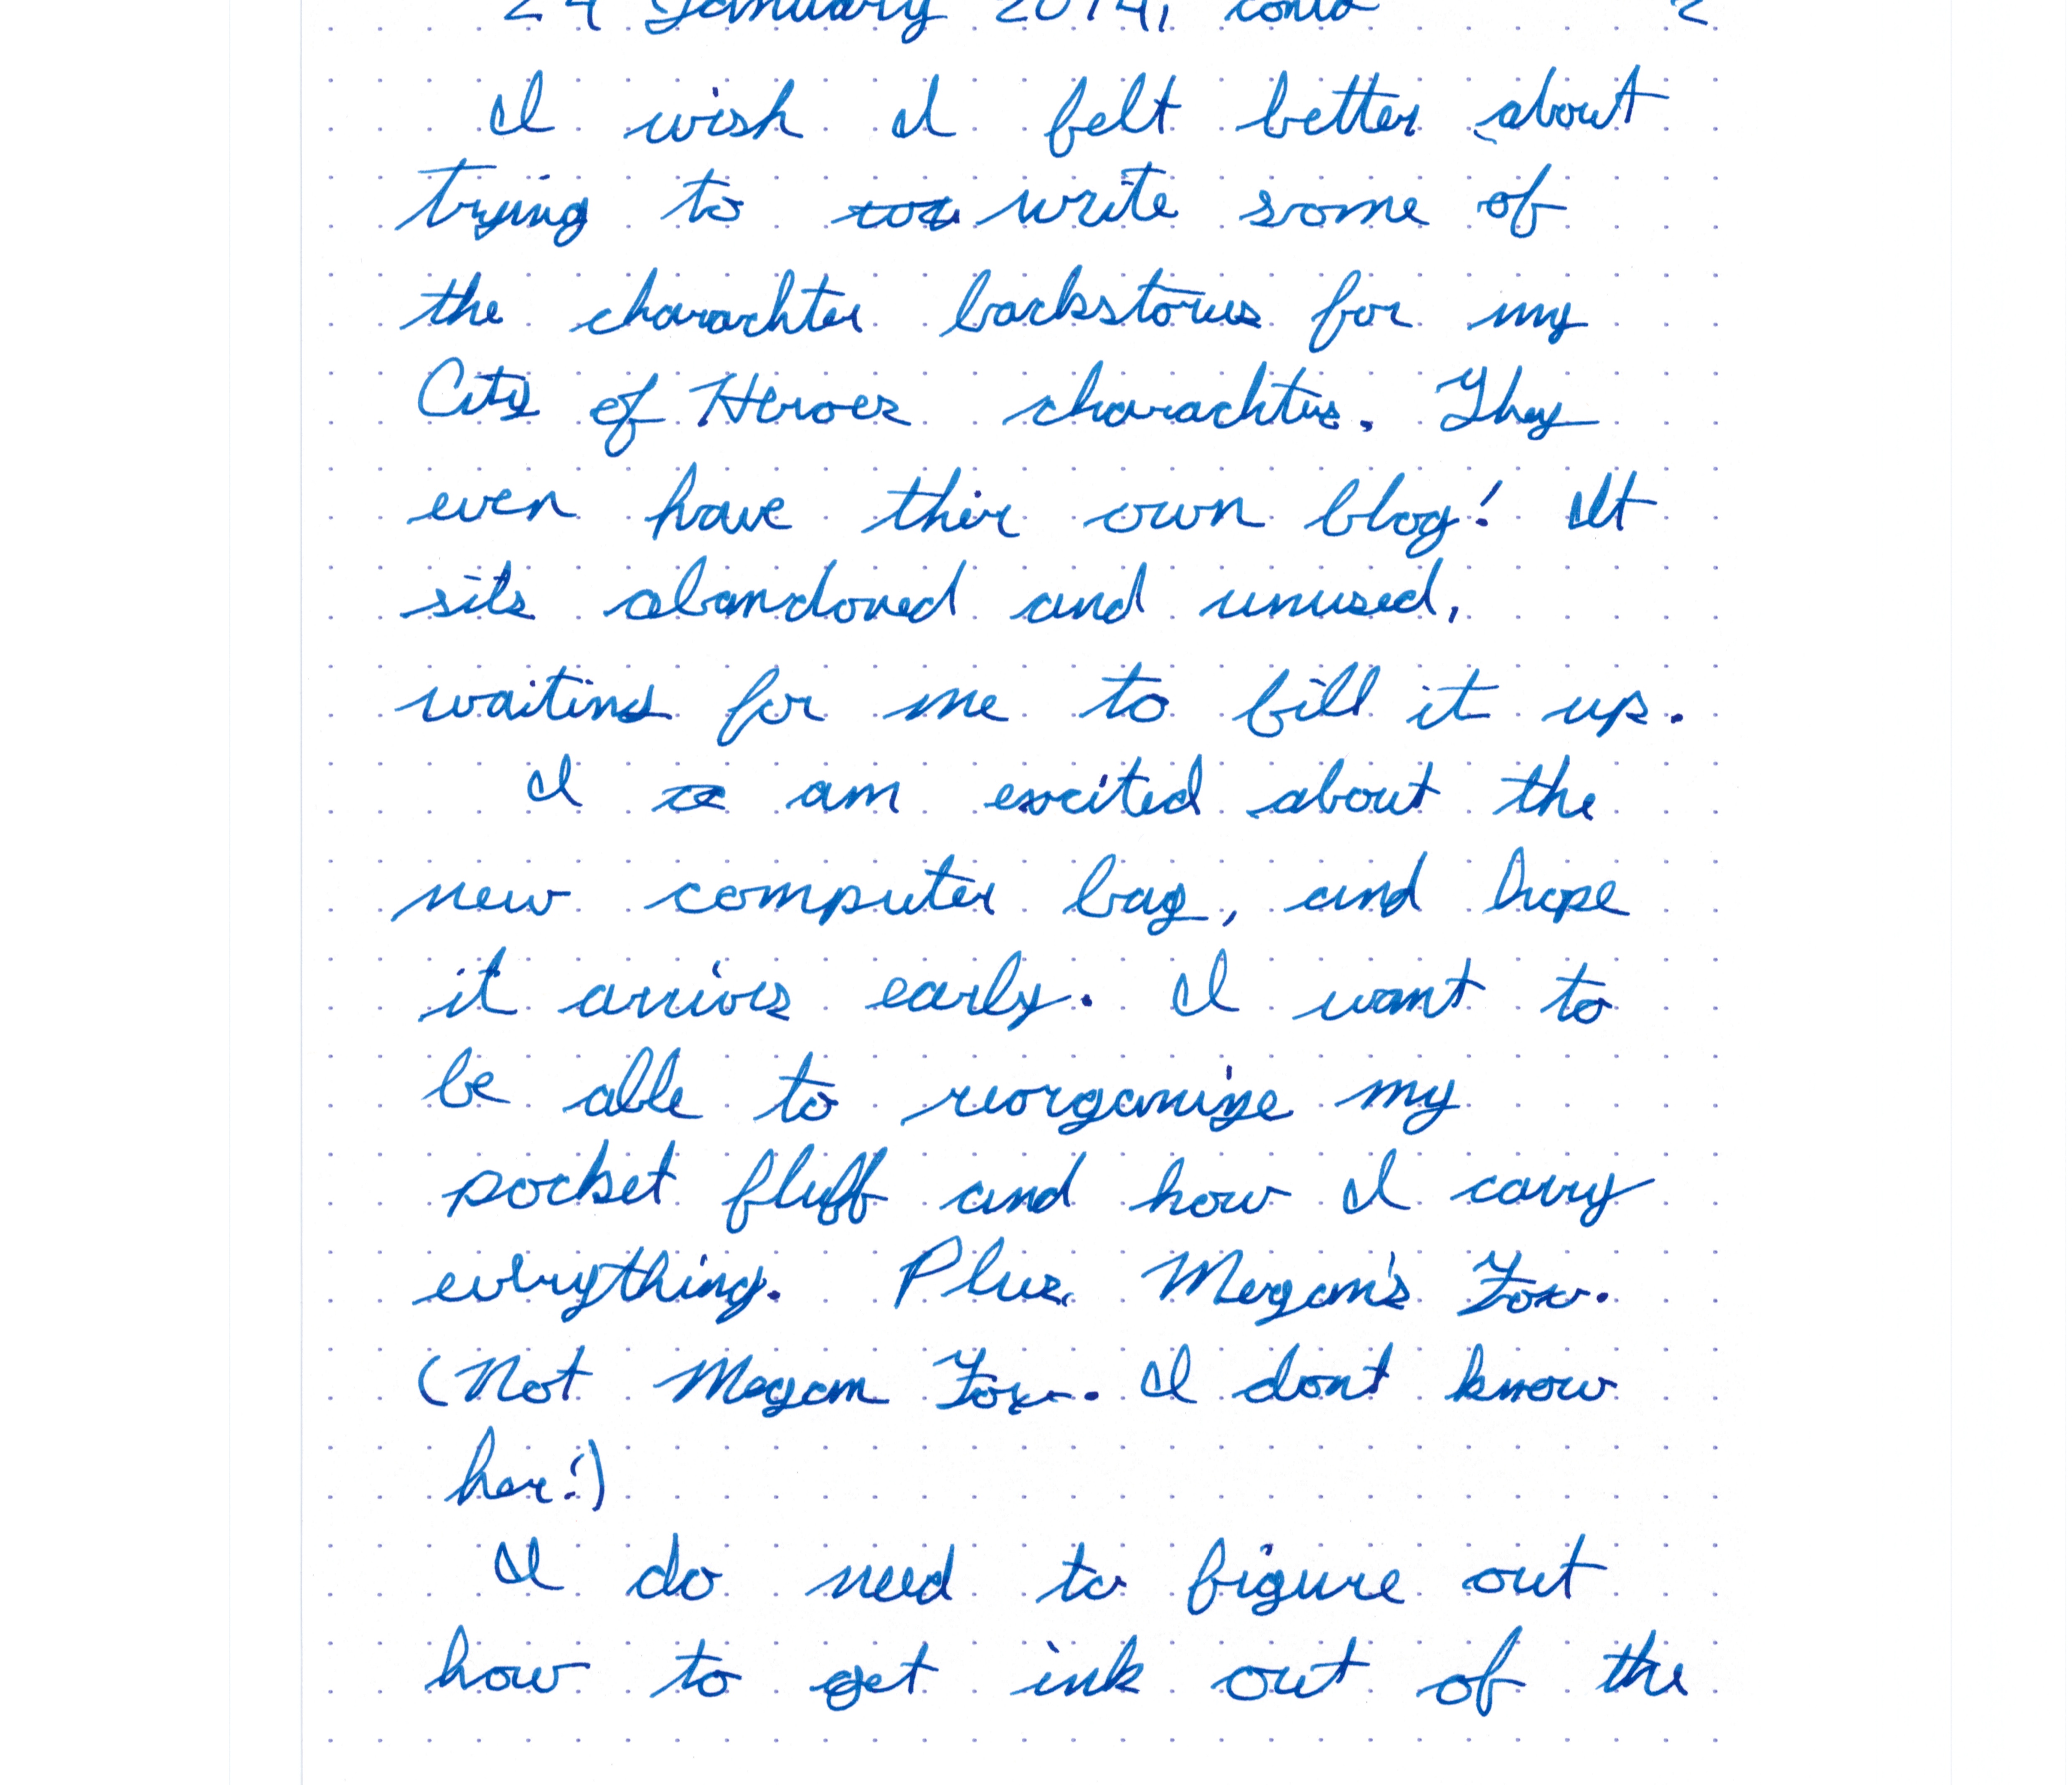 24 January 2014, contd 2
I wish I felt better about
trying to write some of
the charachter backstories for my
City of Heroes charachters. They
even have thier own blog! It
sits abandoned and unused,
waiting for me to fill it up.
I am excited about the
new computer bag, and hope
it arrives early. I want to
be able to reorganize my
pocket fluff and how I carry
everything. Plus Megan's Fox.
(Not Megan Fox. I dont know
her!)
I do need to figure out
how to get ink out of the